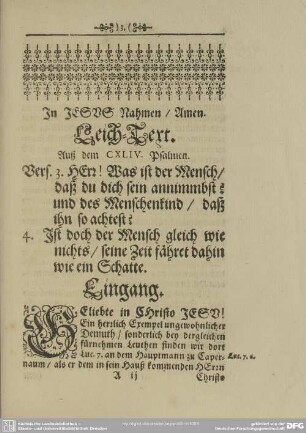 ) 3. (
In JESUS Nahmen / Amen.
Leich-Text.
Auß dem CXLIV. Psalmen.
Vers. 3. HErr! Was ist der Mensch /
daß du dich sein annimmbst?
und des Menschenkind / daß
ihn so achtest?
4. Ist doch der Mensch gleich wie
nichts / seine Zeit fähret dahin
wie ein Schatte.
Eingang.
GEliebte in CHristo JESU!
Ein herrlich Exempel ungewohnlicher
Demuth / sonderlich bey dergleichen
fürnehmen Leuthen finden wir dort
Luc. 7. an dem Hauptmann zu Caper-
Luc. 7. 6.
naum / als er dem in sein Hauß kommenden HErrn
A ij
Christo